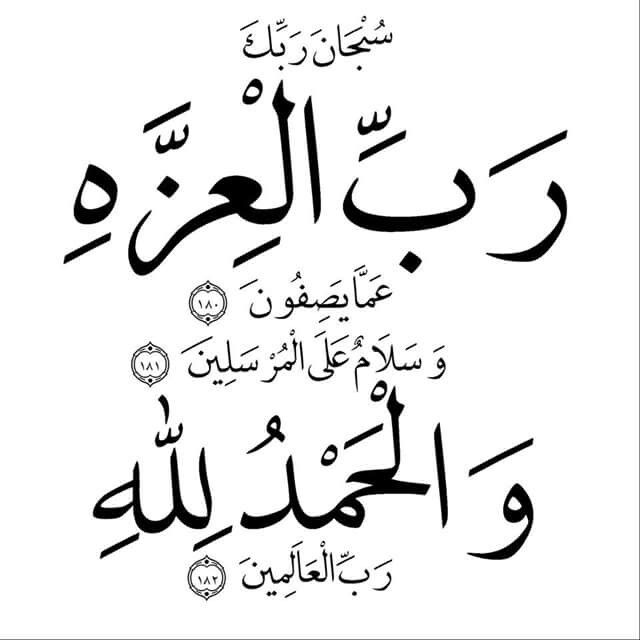 سُبْحَانَ رَبِّكَ
رَبِّ الْعِزَّهِ
عَمَّا يَصِفُونَ ١٨٠
وَسَلَامٌ عَلَى الْمُرْسَلِينَ ١٨١
وَالْحَمْدُ لِلّٰهِ
رَبِّ الْعَالَمِينَ ١٨٢